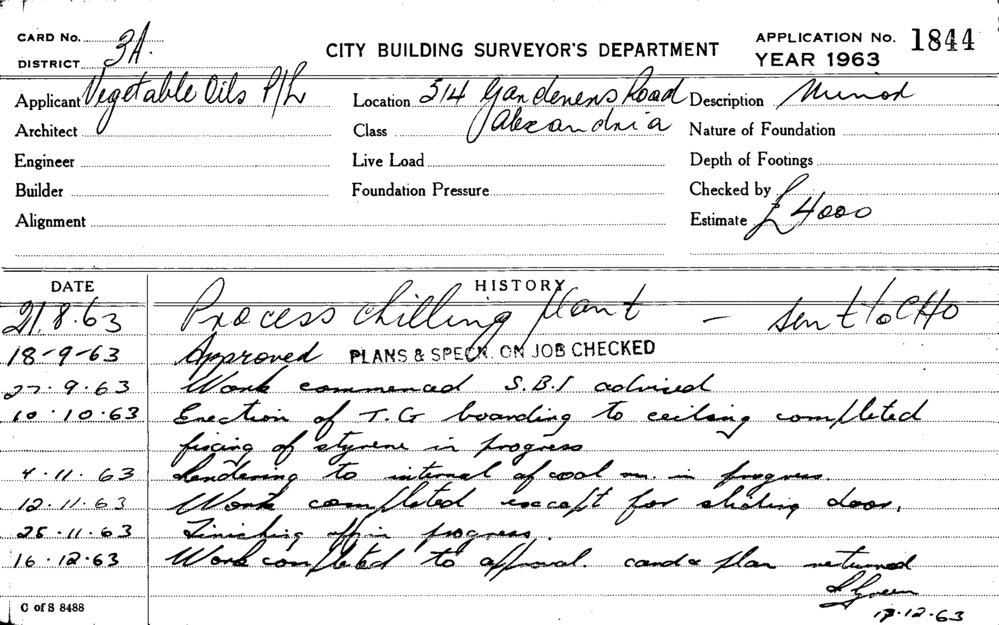 CARD No. 3A.
DISTRICT
CITY BUILDING SURVEYOR'S DEPARTMENT
APPLICATION No. 1844
YEAR 1963
Applicant Vegetable Oils P/L
Location 514 Gardeners Road
Alexandria
Description Minor
Architect
Class
Nature of Foundation
Engineer
Live Load
Depth of Footings
Builder
Foundation Pressure
Checked by
Alignment
Estimate £4000
DATE HISTORY
21.8.63 Process chilling plant – sent to CHO
18-9-63 Approved PLANS & SPECN. ON JOB CHECKED
27.9.63 Work commenced S.B.I advised
10.10.63 Erection of T.G boarding to ceiling completed
fixing of styrene in progress
4.11.63 Rendering to internal of cool rm. in progress.
12.11.63 Work completed except for sliding door.
25.11.63 Finishing off in progress.
16.12.63 Work completed to approval. card & plan returned
Green
17.12.63
C of S 8488